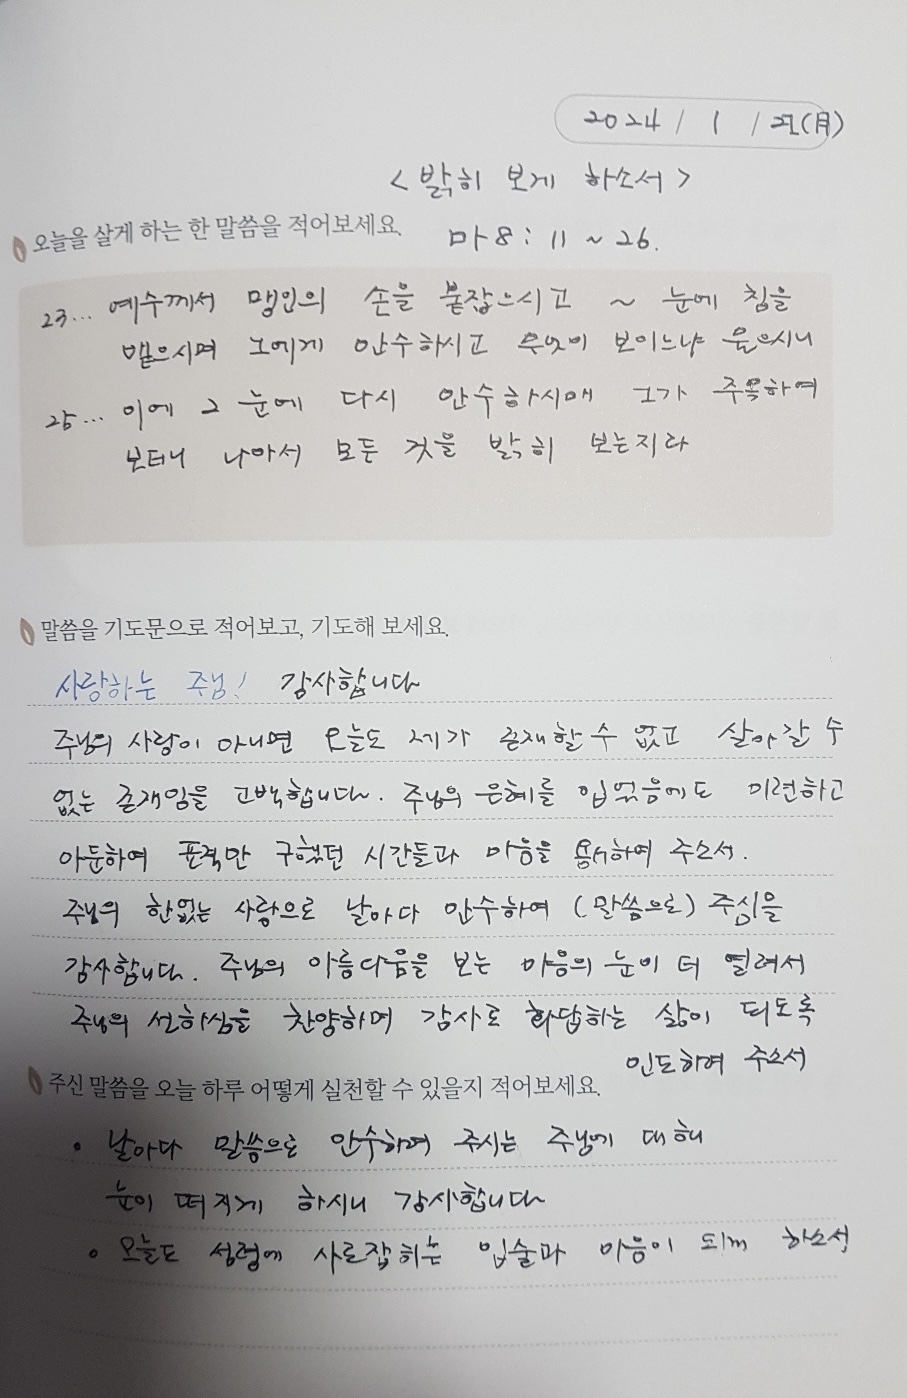 2024 / 1 / 22 (月)
< 밝히 보게 하소서 >
오늘을 살게 하는 한 말씀을 적어보세요.
마 8 : 11 ~ 26.
23... 예수께서 맹인의 손을 붙잡으시고 ~ 눈에 침을
뱉으시며 그에게 안수하시고 무엇이 보이느냐 물으시니
25... 이에 그 눈에 다시 안수하시매 그가 주목하여
보더니 나아서 모든 것을 밝히 보는지라
말씀을 기도문으로 적어보고, 기도해 보세요.
사랑하는 주님! 감사합니다
주님의 사랑이 아니면 오늘도 제가 존재할 수 없고 살아갈 수
없는 존재임을 고백합니다. 주님의 은혜를 입었음에도 미련하고
아둔하여 표적만 구했던 시간들과 마음을 용서하여 주소서.
주님의 한없는 사랑으로 날마다 안수하여 (말씀으로) 주심을
감사합니다. 주님의 아름다움을 보는 마음의 눈이 더 열려서
주님의 선하심을 찬양하며 감사로 화답하는 삶이 되도록
인도하여 주소서
주신 말씀을 오늘 하루 어떻게 실천할 수 있을지 적어보세요.
• 날마다 말씀으로 안수하여 주시는 주님에 대해
눈이 떠지게 하시니 감사합니다
• 오늘도 성령에 사로잡히는 입술과 마음이 되게 하소서